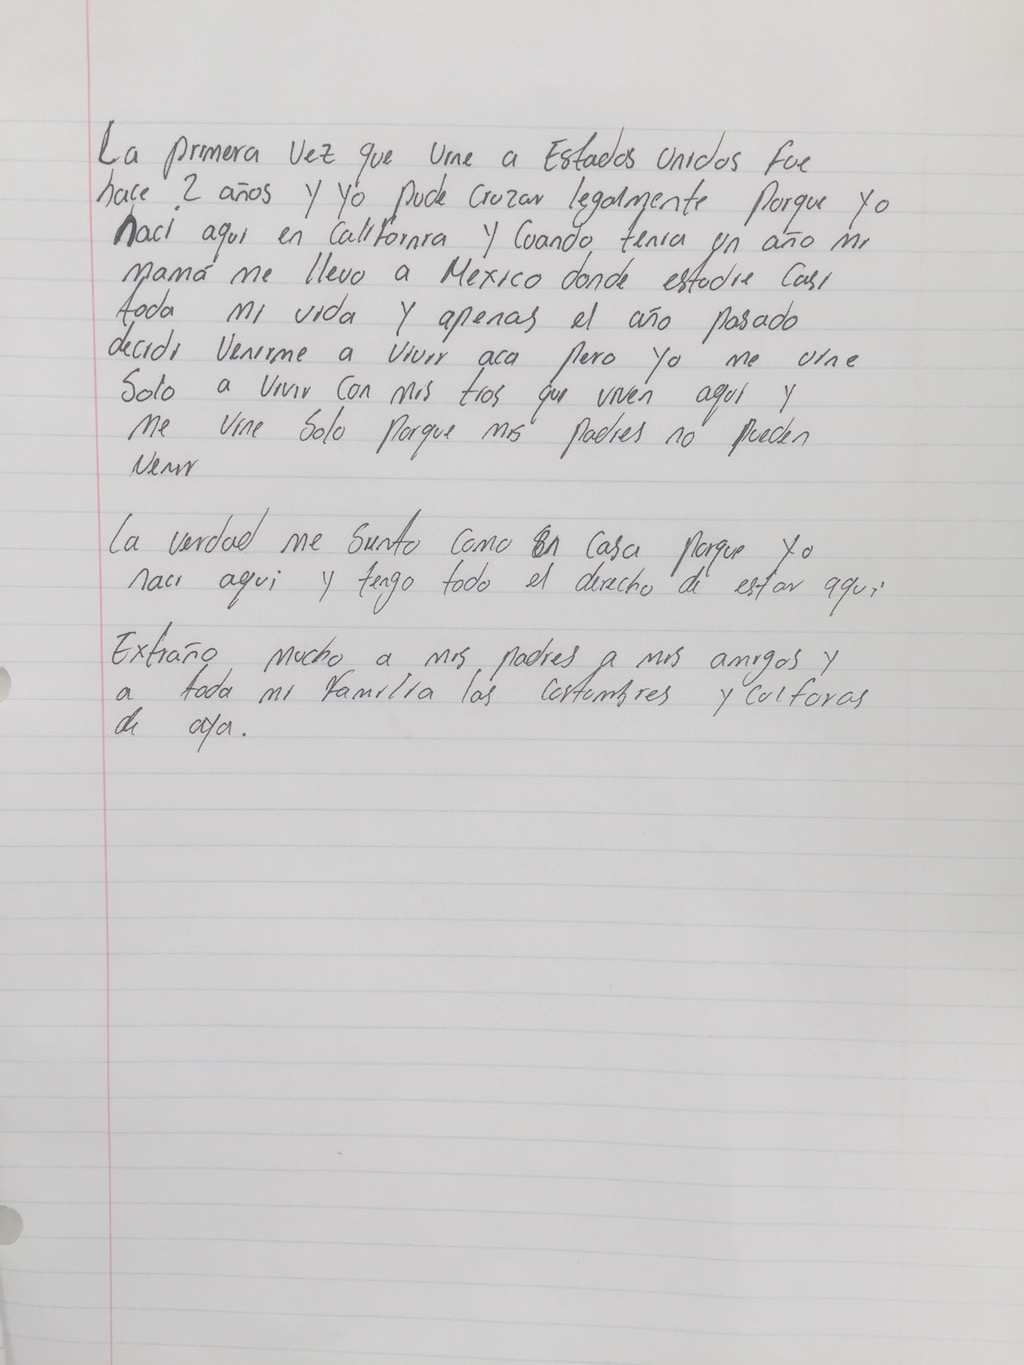 La primera vez que vine a Estados Unidos fue
hace 2 años y yo pude cruzar legalmente porque yo
naci aqui en California y cuando tenia un año mi
mamá me llevo a Mexico donde estudie casi
toda mi vida y apenas el año pasado
decidi venirme a vivir aca pero yo me vine
solo a vivir con mis tios que viven aqui y
me vine solo porque mis padres no pueden
venir
La verdad me siento como en casa porque yo
naci aqui y tengo todo el derecho de estar aqui
Extraño mucho a mis padres a mis amigos y
a toda mi familia las costumbres y culturas
de aya.